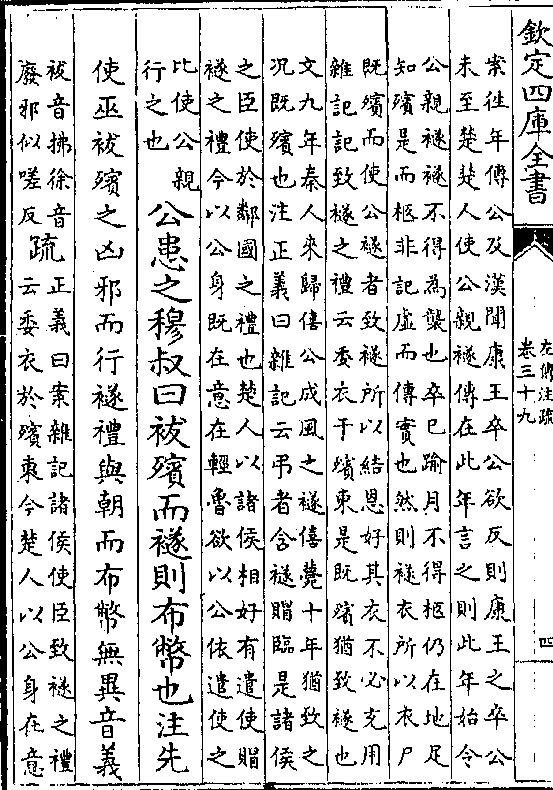 欽定四庫全書
左傳注疏
卷三十九
四
案往年傳公及漢聞康王卒公欲反則康王之卒公
未至楚楚人使公親襚傳在此年言之則此年始令
公親襚襚不得為襲也卒已踰月不得柩仍在地足
知殯是而柩非記虛而傳實也然則襚衣所以衣尸
既殯而使公襚者致襚所以結恩好其衣不必充用
雜記記致襚之禮云委衣于殯東是既殯猶致襚也
文九年秦人來歸僖公成風之襚僖薨十年猶致之
況既殯也注正義曰雜記云弔者含襚賵臨是諸侯
之臣使於鄰國之禮也楚人以諸侯相好有遣使賵
襚之禮今以公身既在意在輕魯欲以公依遣使之
比使公親
行之也
公患之穆叔曰祓殯而襚則布幣也注先
使巫祓殯之凶邪而行襚禮與朝而布幣無異音義
祓音拂徐音
廢邪似嗟反
疏
正義曰案雜記諸侯使臣致襚之禮
云委衣於殯東今楚人以公身在意